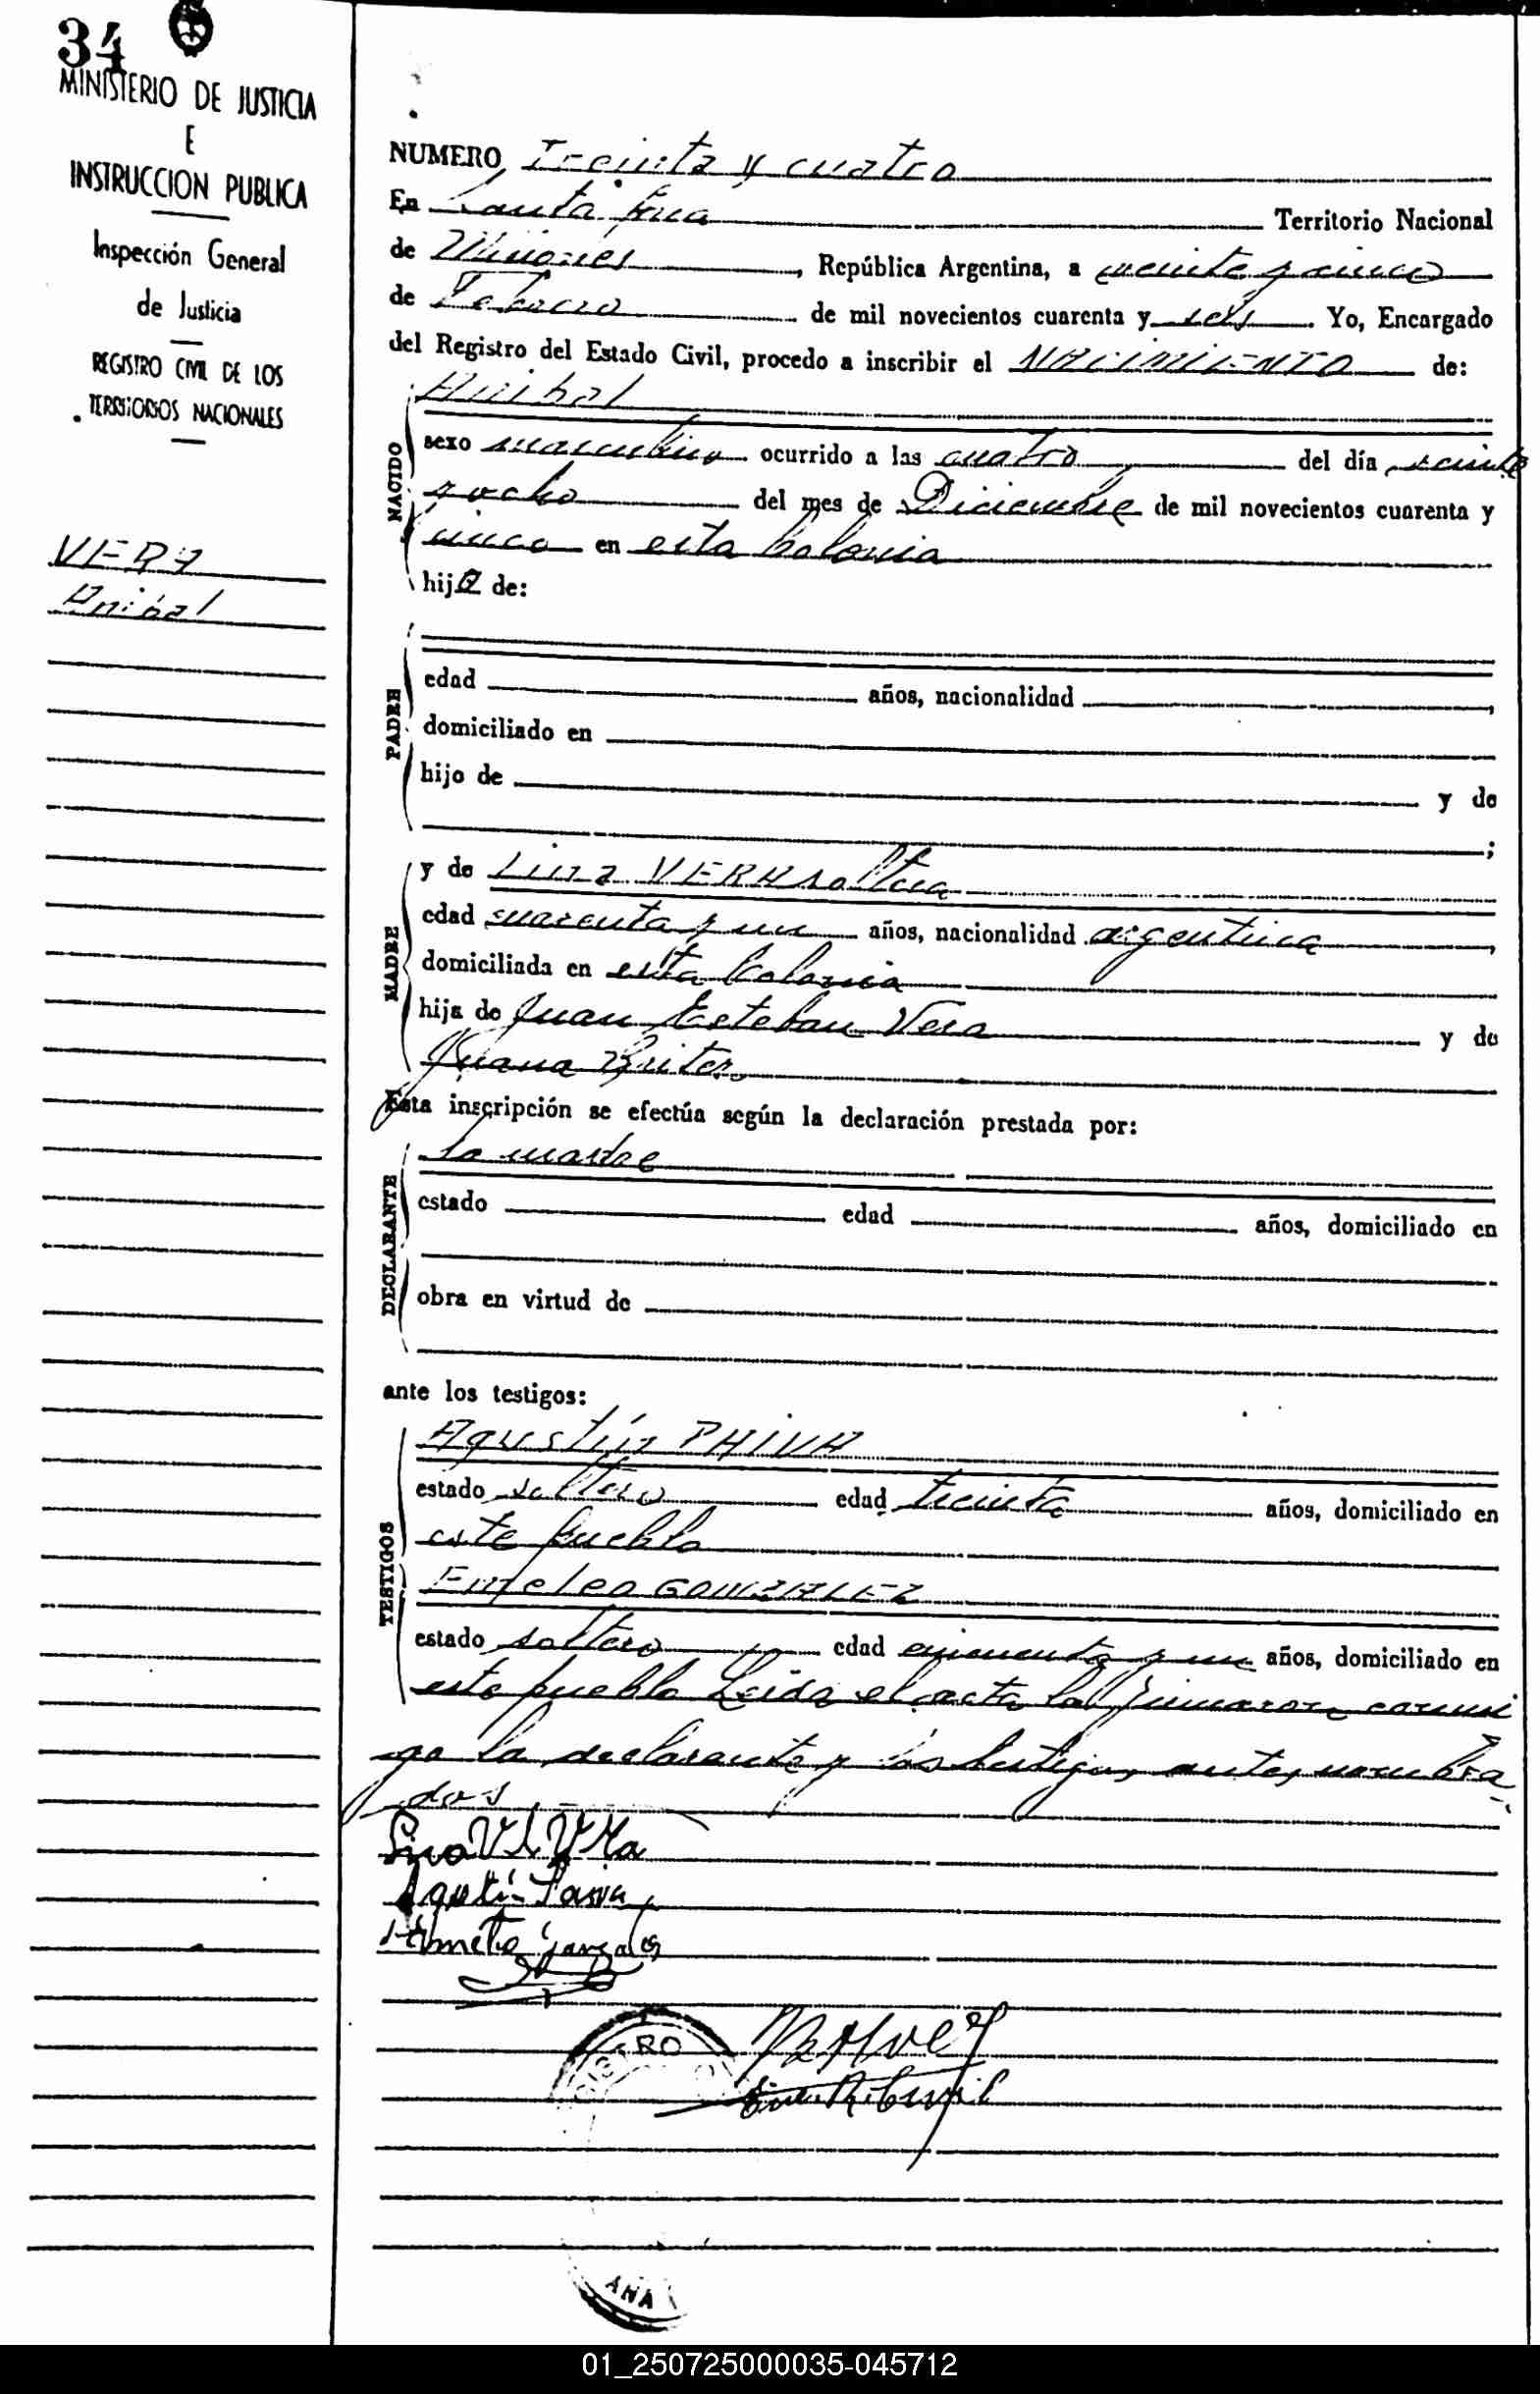 34
MINISTERIO DE JUSTICIA
E
INSTRUCCION PUBLICA
Inspección General
de Justicia
REGISTRO CIVIL DE LOS
TERRITORIOS NACIONALES
VERA
Anibal
NUMERO Treinta y cuatro
En Santa Ana Territorio Nacional
de Misiones, República Argentina, a veinte y cinco
de Febrero de mil novecientos cuarenta y seis. Yo, Encargado
del Registro del Estado Civil, procedo a inscribir el NACIMIENTO de:
NACIDO
Anibal
sexo masculino ocurrido a las cuatro del día veinte
y ocho del mes de Diciembre de mil novecientos cuarenta y
cinco en esta Colonia
hijo de:
PADRE
edad años, nacionalidad ,
domiciliado en
hijo de y de
;
MADRE
y de Lina VERA soltera
edad cuarenta y un años, nacionalidad argentina,
domiciliada en esta Colonia
hija de Juan Esteban Vera y de
Juana Britez.
Esta inscripción se efectúa según la declaración prestada por:
DECLARANTE
la madre
estado edad años, domiciliado en
obra en virtud de
ante los testigos:
TESTIGOS
Agustín PAIVA
estado soltero edad treinta años, domiciliado en
este pueblo
GONZALEZ
estado soltero edad cincuenta y un años, domiciliado en
este pueblo Leida el acta la firmaron conmi
go la declarante y los testigos antes nombra
dos
Paiva
REGISTRO
ANA
01_250725000035-045712